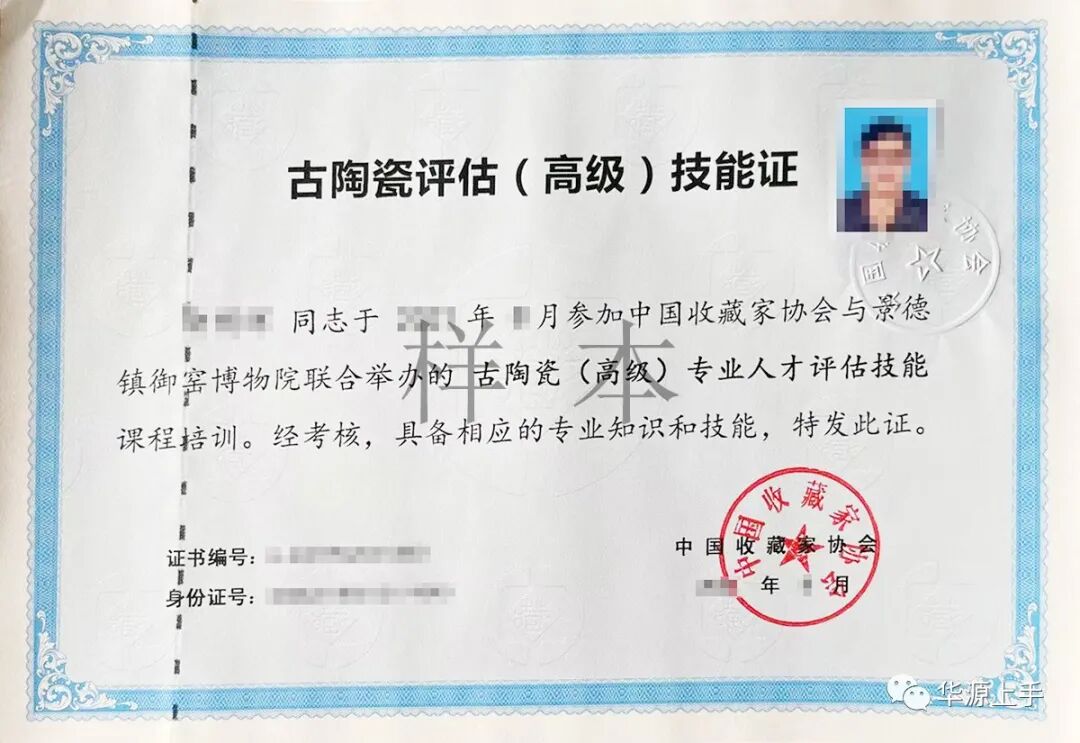 古陶瓷评估（高级）技能证
国 协会
同志于 年 月参加中国收藏家协会与景德
镇御窑博物院联合举办的 古陶瓷（高级）专业人才评估技能
课程培训。经考核，具备相应的专业知识和技能，特发此证。
样本
证书编号：
身份证号：
中国收藏家协会
年 月
中国收藏家协会
华源上手